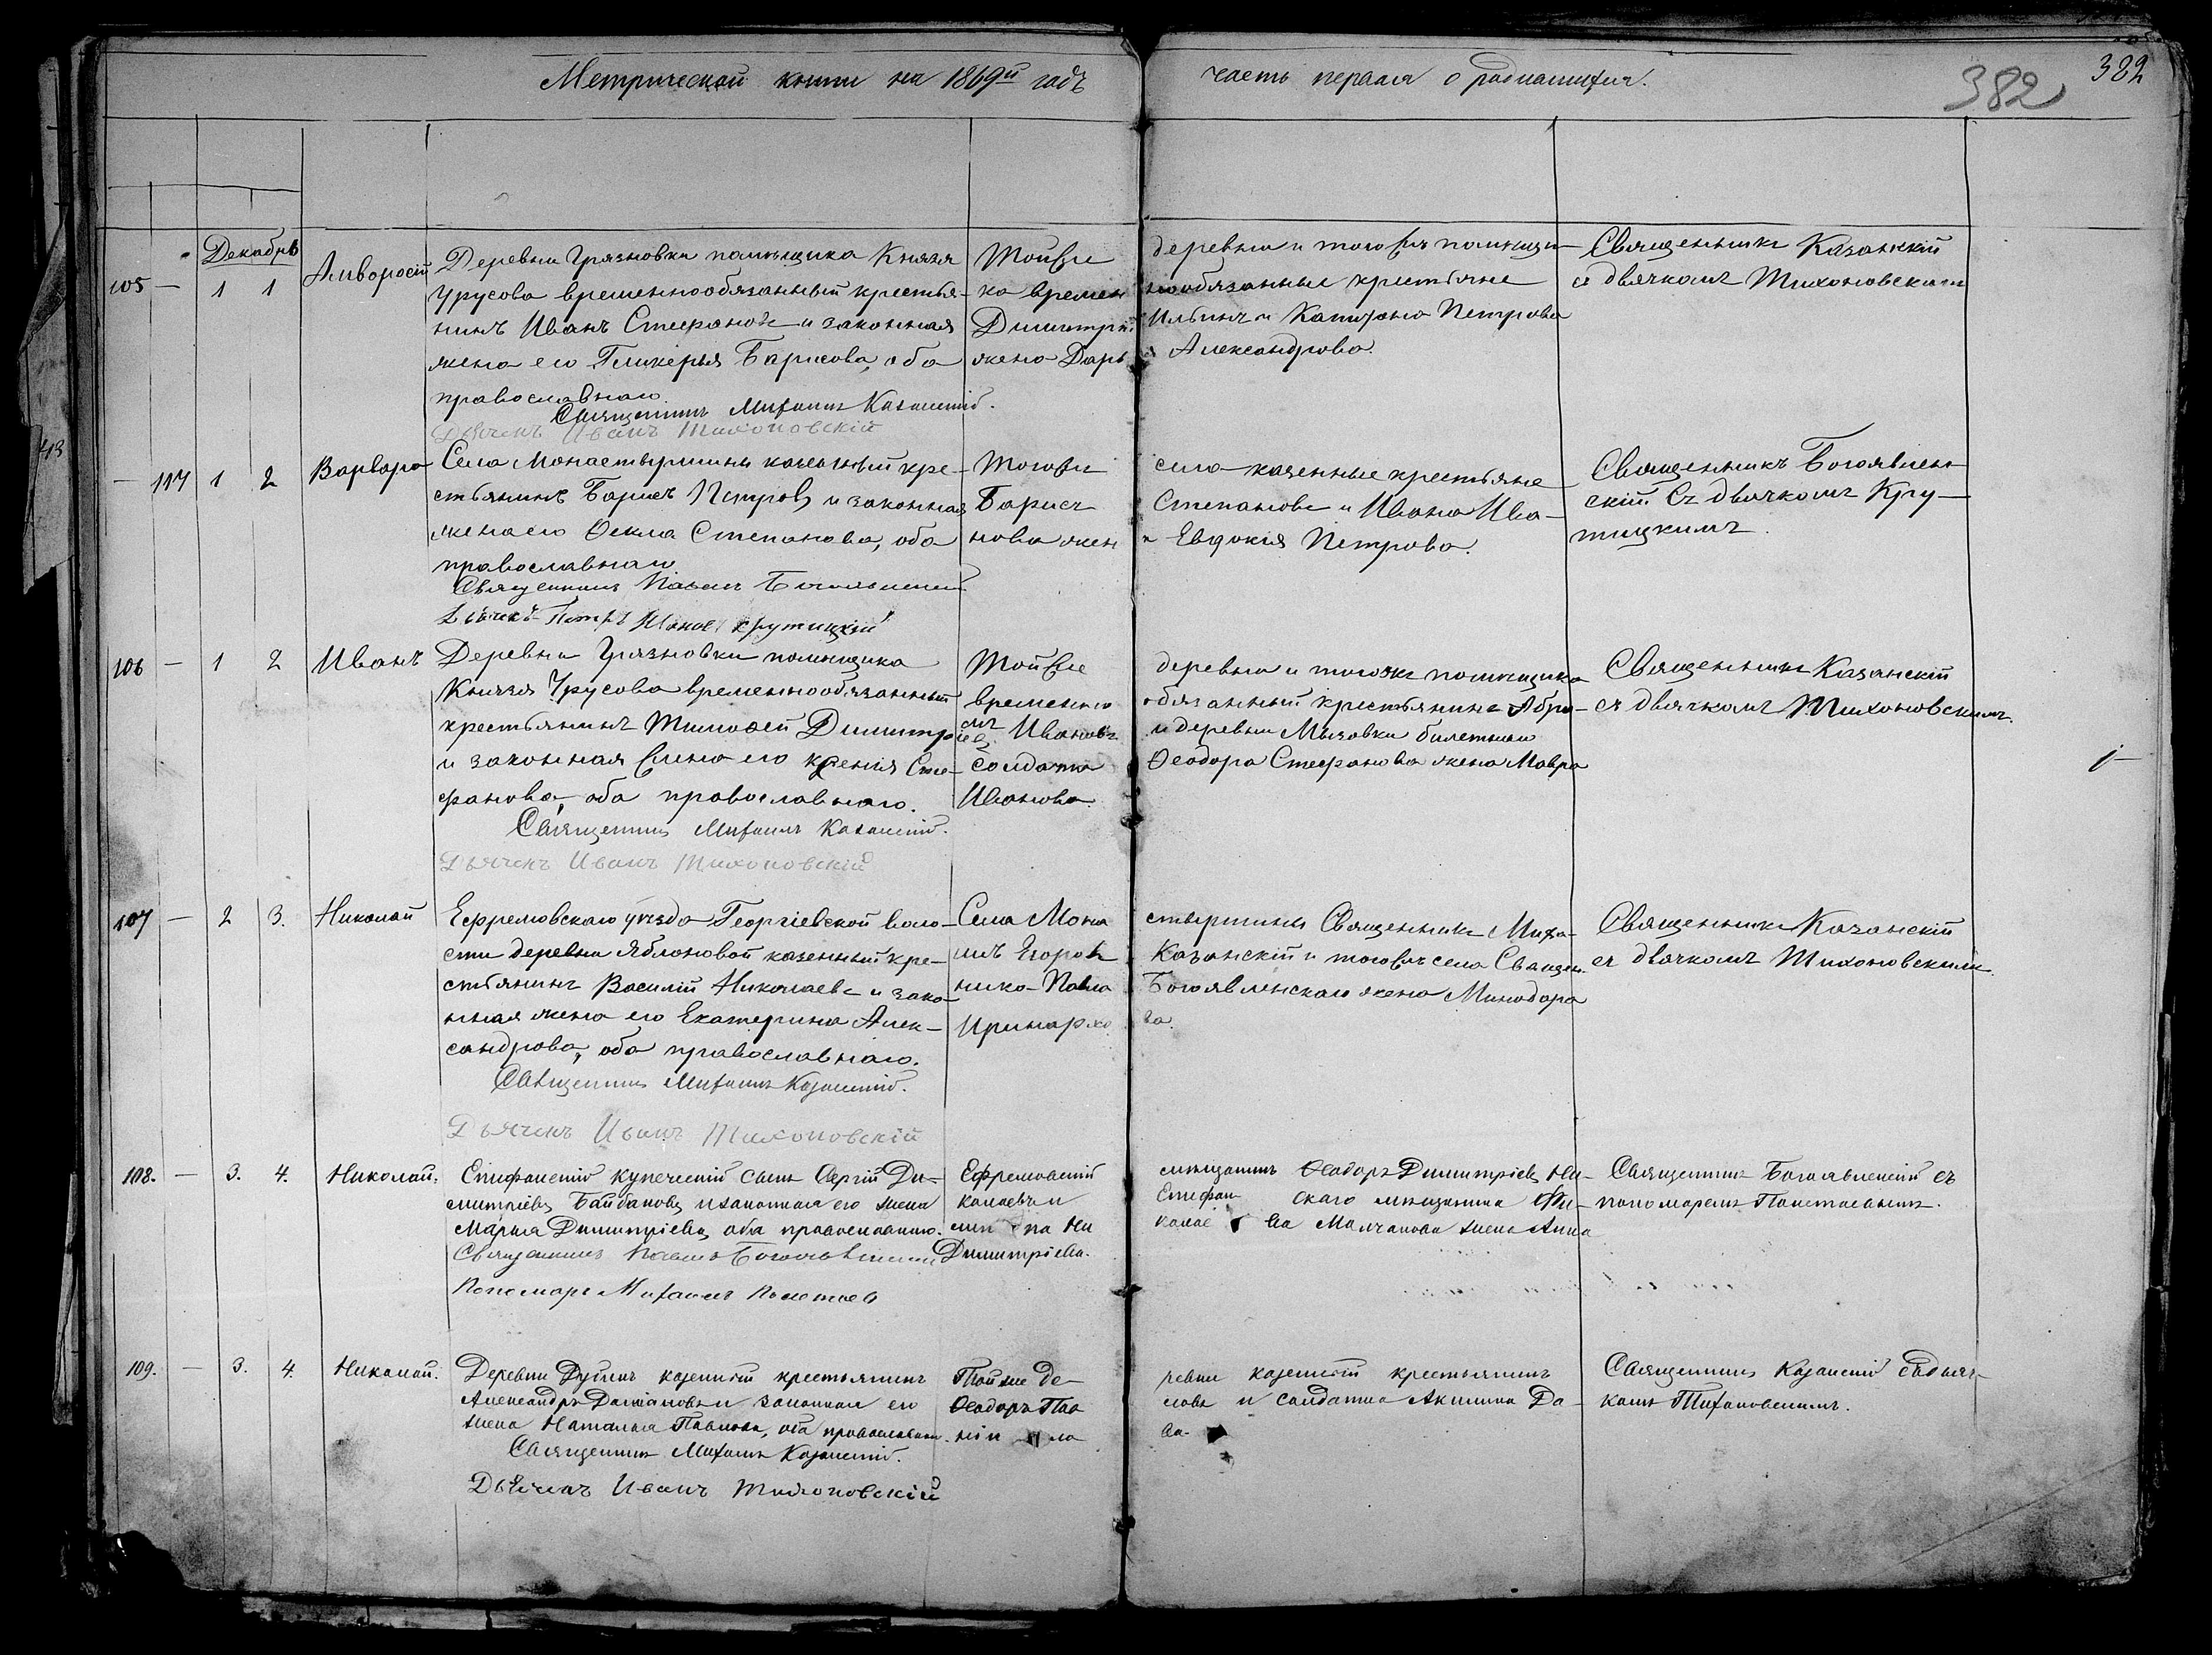 Метрической книги на 1869й годъ часть первая о родившихся.
382
382
Декабрь
105 — 1 1 Амвросій
Деревни Грязновки помѣщика Князя
Урусова временнообязанный крестья-
нинъ Иванъ Стефановъ и законная
жена его Гликерья Борисова, оба
православнаго.
Священникъ Михаилъ Казанскій.
Дьячекъ Иванъ Тихоновскій
Той же деревни и того же помѣщи-
ка временнообязанные крестьяне
Димитрій Ильинъ и Капитона Петрова
жена Дарья Александрова.
Священникъ Казанскій
съ дьячкомъ Тихоновскимъ
— 117 1 2 Варвара
Села Монастырщины казенный кре-
стьянинъ Борисъ Петровъ и законная
жена его Ѳекла Степанова, оба
православнаго
Священникъ Павелъ Богоявленскій
Дьячекъ Петръ Крутицкій
Того же села казенные крестьяне
Борисъ Степановъ и Ивана Ива-
нова жена Евдокія Петрова.
Священникъ Богоявлен-
скій съ дьячкомъ Кру-
тицкимъ.
106 — 1 2 Иванъ
Деревни Грязновки помѣщика
Князя Урусова временнообязанный
крестьянинъ Тимоѳей Димитріевъ
и законная жена его Ксенія Сте-
фанова, оба православнаго.
Священникъ Михаилъ Казанскій.
Дьячекъ Иванъ Тихоновскій
Той же деревни и того же помѣщика
временнообязанный крестьянинъ Абра-
мъ Ивановъ и деревни Мызовки билетнаго
солдата Ѳеодора Стефанова жена Мавра
Иванова.
Священникъ Казанскій
съ дьячкомъ Тихоновскимъ.
1—
107 — 2 3. Николай
Ефремовскаго уѣзда Георгіевской воло-
сти деревни Яблоновой казенный кре-
стьянинъ Василій Николаевъ и зако-
нная жена его Екатерина Алек-
сандрова, оба православнаго.
Священникъ Михаилъ Казанскій.
Дьячекъ Иванъ Тихоновскій
Села Монастырщины Священникъ Миха-
илъ Егоровъ Казанскій и того же села Священ-
ника Павла Богоявленскаго жена Минодора
Иринархова.
Священникъ Казанскій
съ дьячкомъ Тихоновскимъ.
108. — 3. 4. Николай.
Епифанскій купеческій сынъ Сергій Ди-
митріевъ Байбаковъ и законная его жена
Марья Димитріева, оба православнаго.
Священникъ Павелъ Богоявленскій
Пономарь Михаилъ
Ефремовскій мѣщанинъ Ѳеодоръ Димитріевъ Ни-
колаевъ и Епифанскаго мѣщанина Фи-
на Николаева Молчанова жена Анна
Димитріева.
Священникъ Богоявленскій съ
пономаремъ
109. — 3. 4. Николай.
Деревни казенный крестьянинъ
Александръ и законная его
жена Наталья Павлова, оба православнаго.
Священникъ Михаилъ Казанскій.
Дьячекъ Иванъ Тихоновскій
Той же деревни казенный крестьянинъ
Ѳеодоръ Павловъ и солдатка Акилина Да-
ніилова.
Священникъ Казанскій съ дьяч-
комъ Тихоновскимъ.